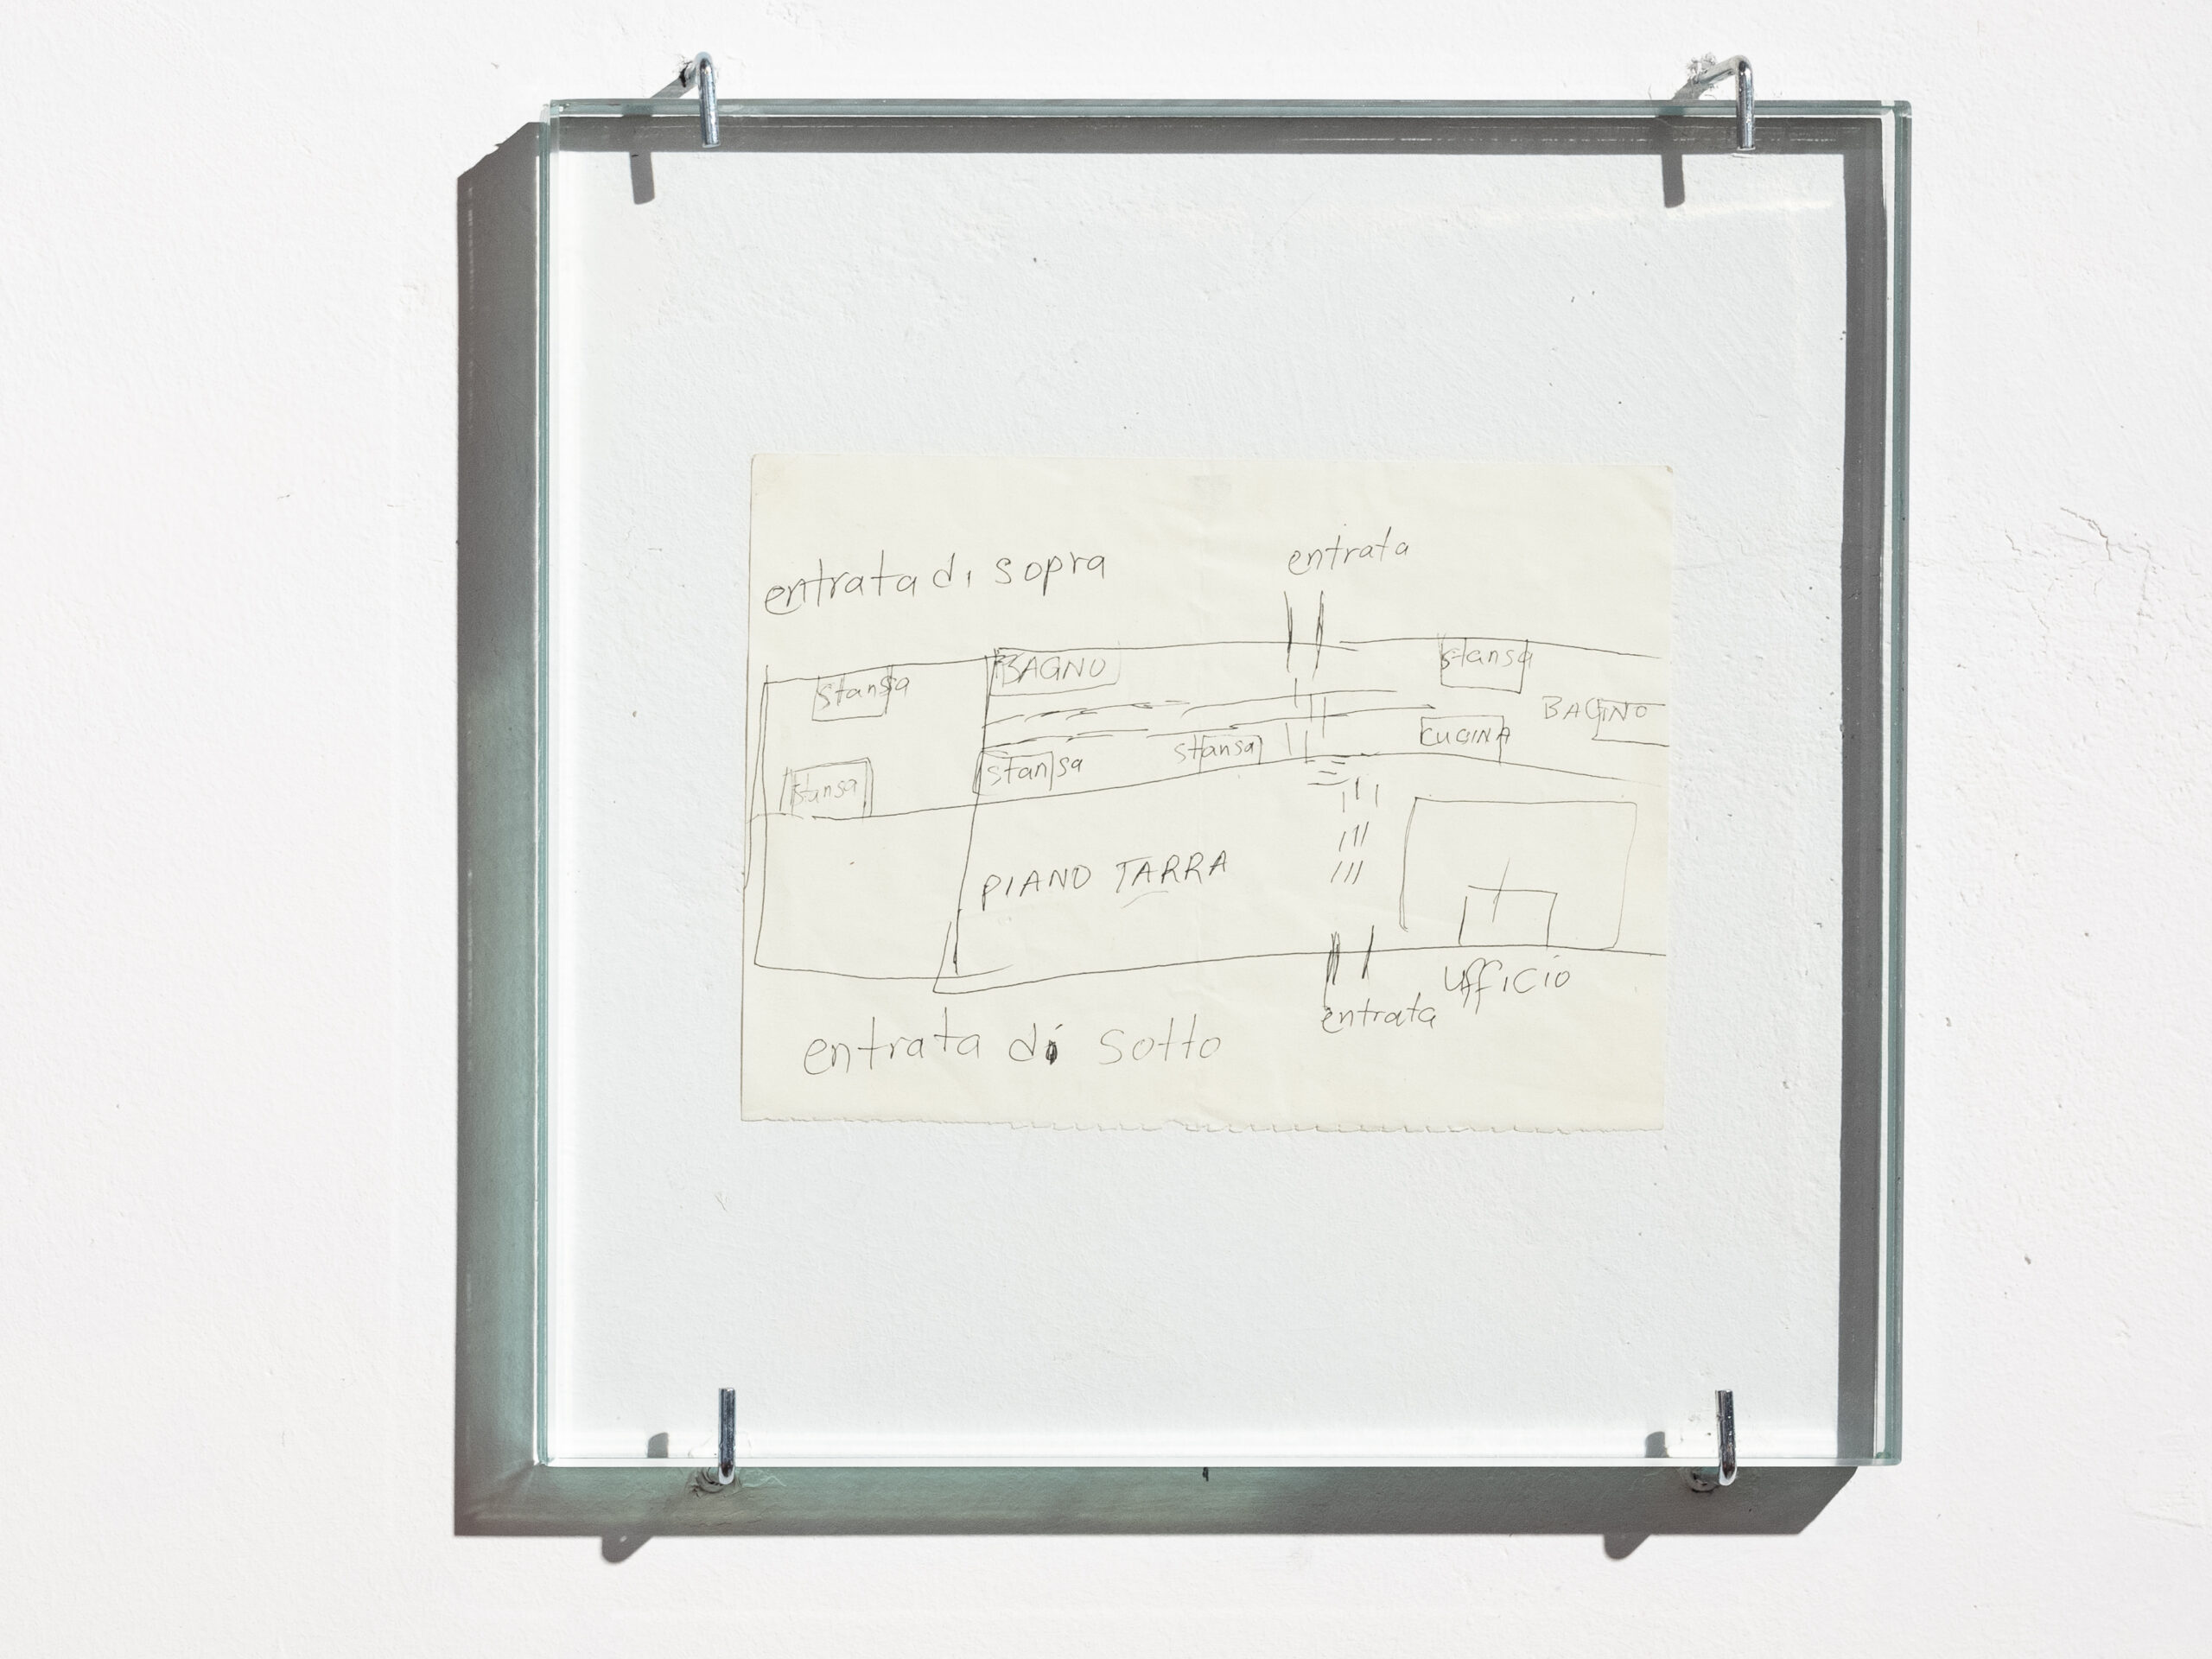 entrata di sopra
entrata
BAGNO
stansa
stansa
BAGINO
stansa
CUCINA
stansa
stansa
stansa
PIANO TARRA
ufficio
entrata
entrata di sotto